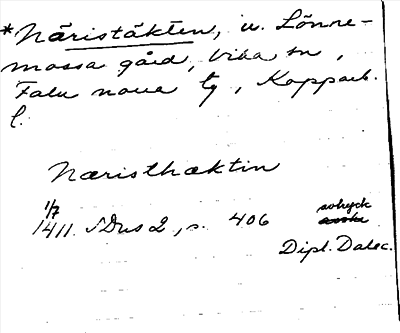 *Näristäkten, u. Lönne-
mossa gård, Vika sn,
Falu norra tg, Kopparb.
l.
Næristhæktin
1/7
1411. SDns 2, s. 406 avtryck
Dipl. Dalec.